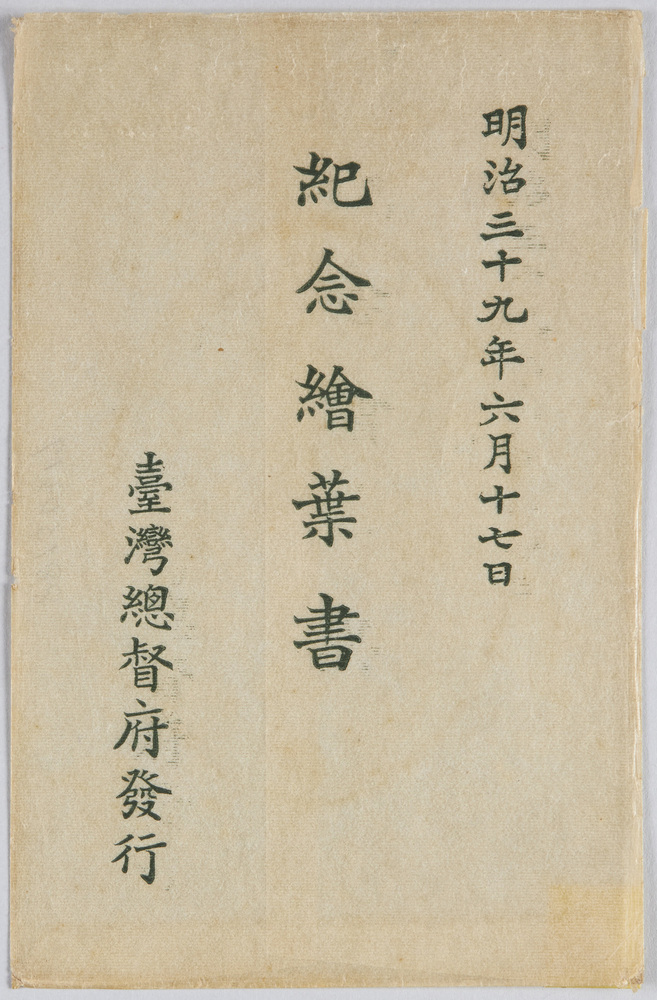 明治三十九年六月十七日
紀念繪葉書
臺灣總督府發行